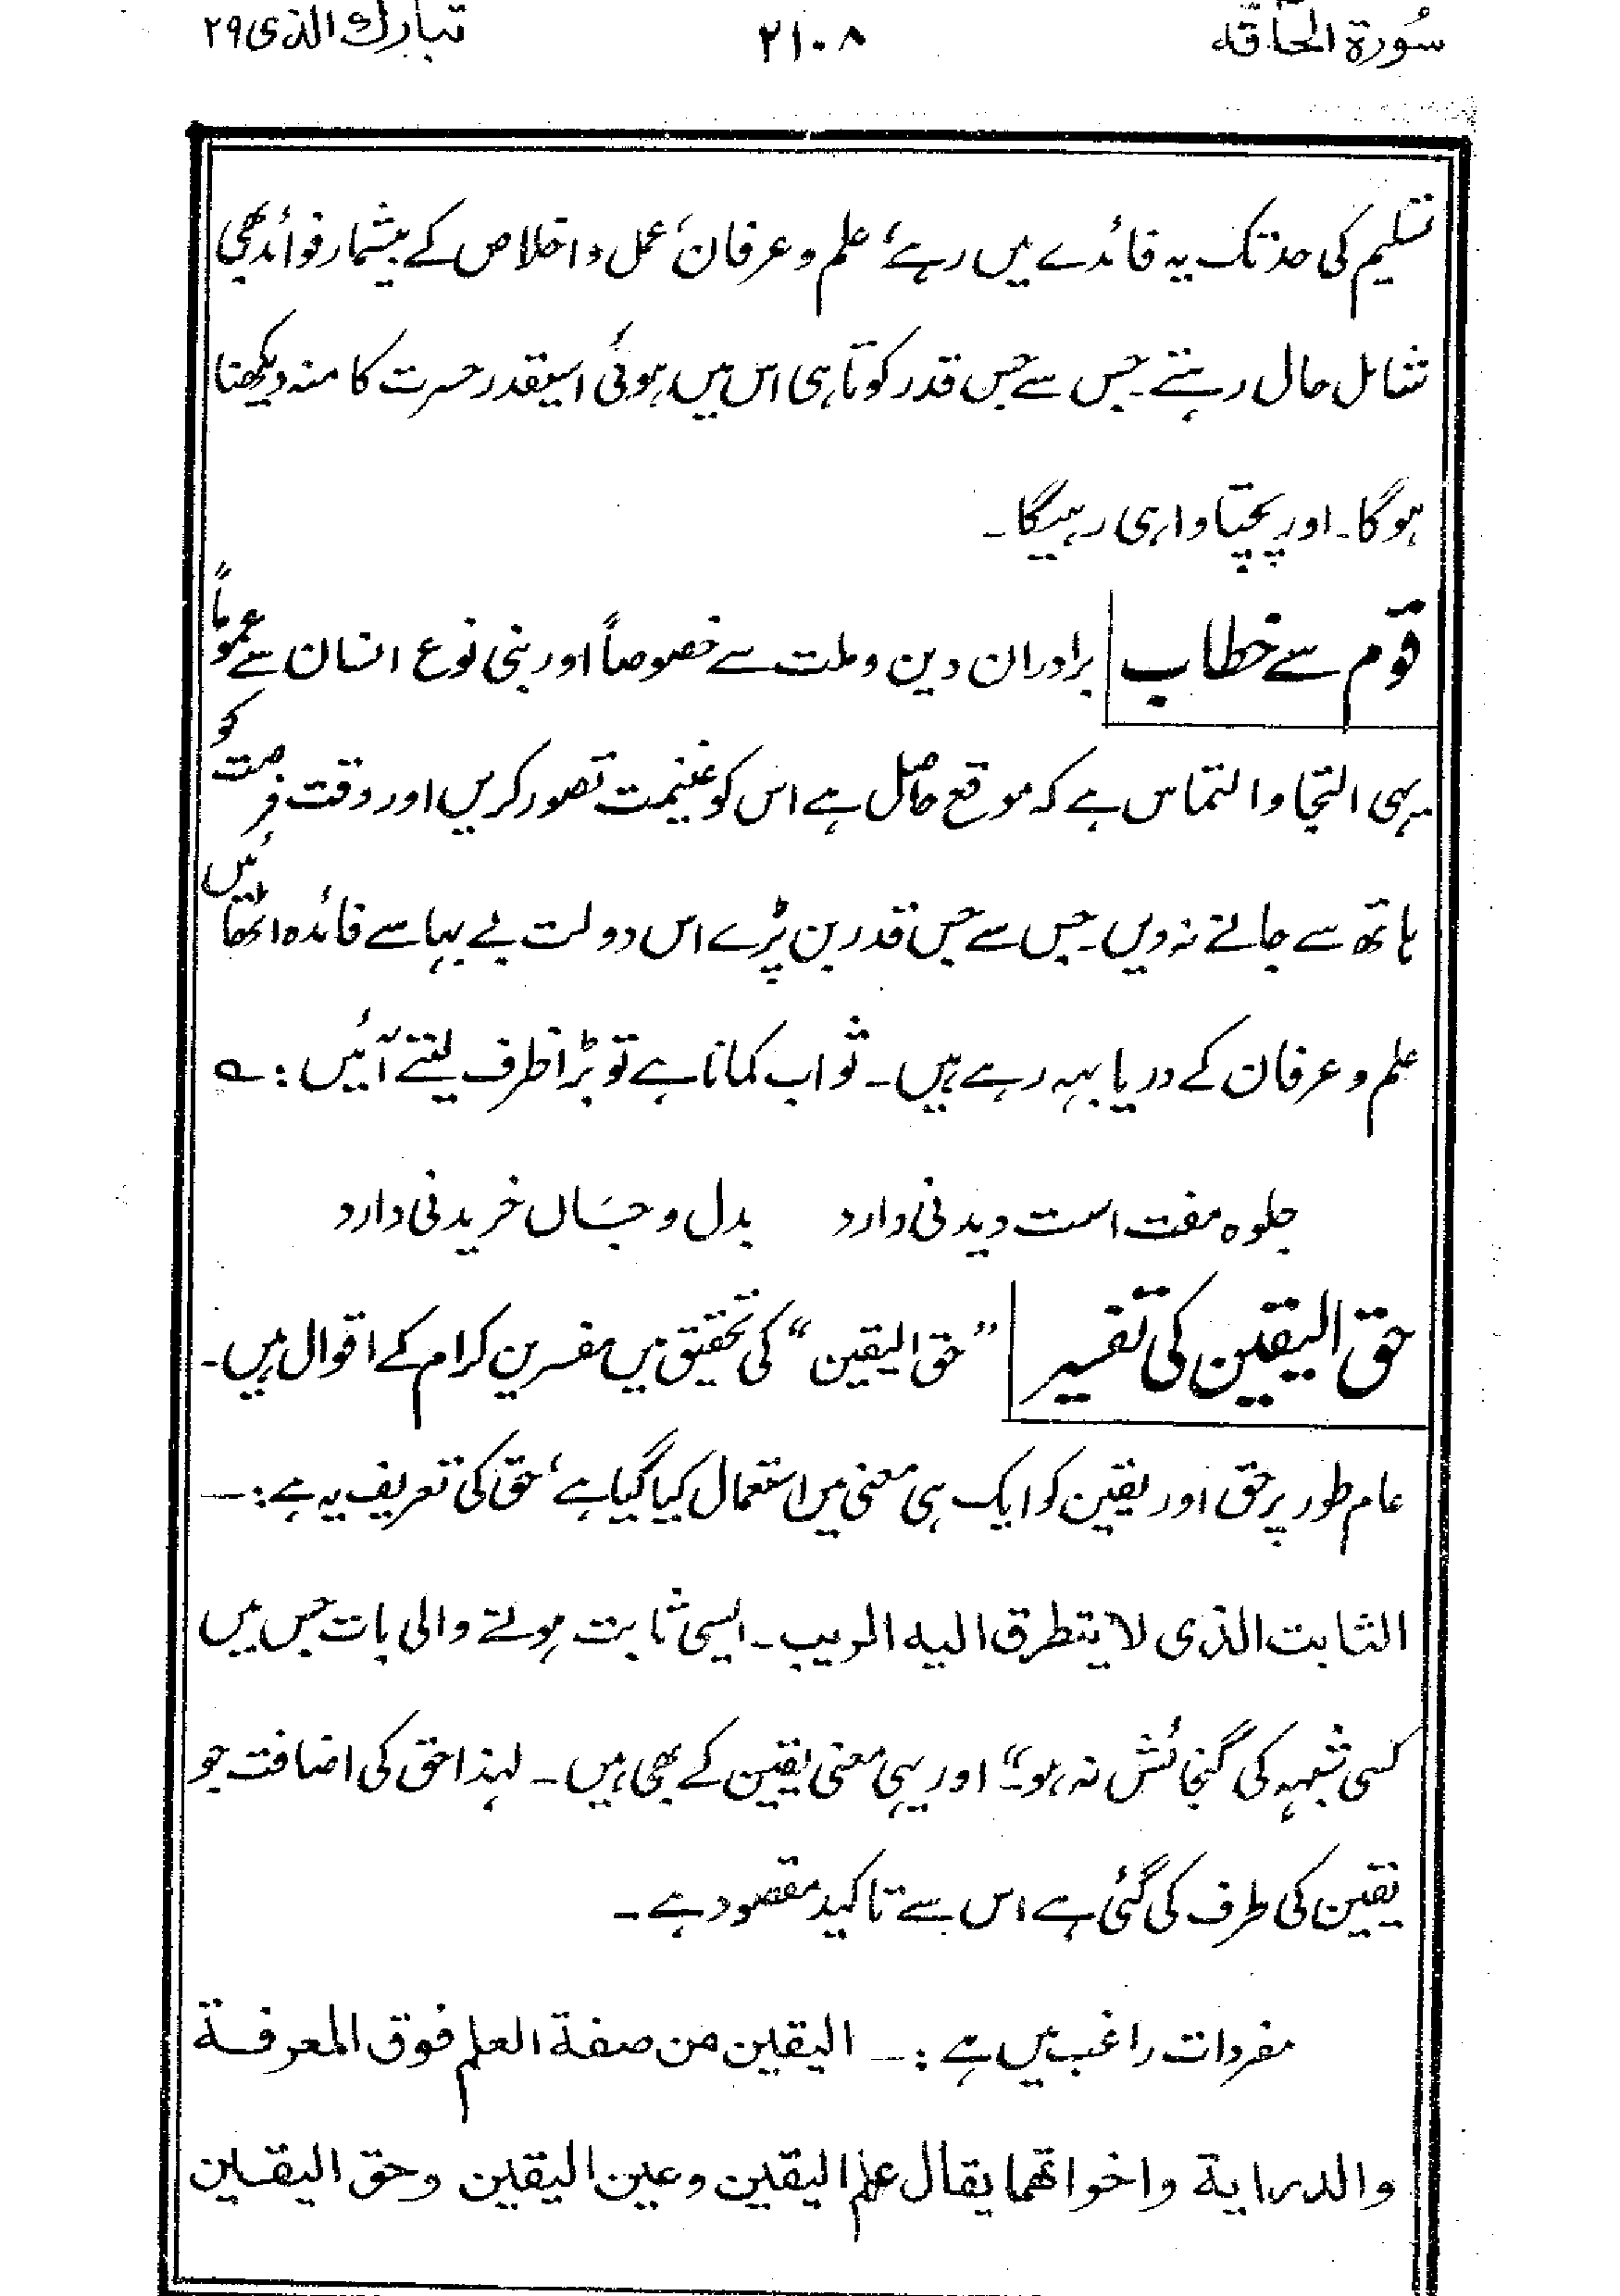 سُورة الحَاقّه ۲۱۰۸ تبارك الذی ۲۹
تسلیم کی حد تک یہ فائدے میں رہے، علم و عرفان، عمل و اخلاص کے بیشمار فوائد بھی
شامل حال رہتے۔ جس سے جس قدر کوتاہی اس میں ہوئی اسیقدر حسرت کا منہ دیکھنا
ہوگا۔ اور پچپتاوا ہی رہیگا۔
قوم سے خطاب برادران دین و ملت سے خصوصاً اور بنی نوع انسان سے عموماً
یہی التجا و التماس ہے کہ موقع حاصل ہے اس کو غنیمت تصور کریں اور وقت فرصت کو
ہاتھ سے جانے نہ دیں۔ جس سے جس قدر بن پڑے اس دولت بے بہا سے فائدہ اٹھائیں
علم و عرفان کے دریا بہہ رہے ہیں۔ ثواب کمانا ہے تو بڑا ظرف لیتے آئیں :ـہ
جلوہ مفت است دیدنی دارد بدل و جسَاں خریدنی دارد
حق الیقین کی تفسیر ”حق الیقین“ کی تحقیق میں مفسرین کرام کے اقوال ہیں۔
عام طور پر حق اور یقین کو ایک ہی معنی میں استعمال کیا گیا ہے، حق کی تعریف یہ ہے :ـ
الثابت الذی لا یتطرق الیه الریب۔ ایسی ثابت ہونے والی بات جس میں
کسی شبہہ کی گنجائش نہ ہو۔“ اور یہی معنی یقین کے بھی ہیں۔ لہذا حق کی اضافت جو
یقین کی طرف کی گئی ہے اس سے تاکید مقصود ہے۔
مفردات راغب میں ہے :ـ الیقین من صفة العلم فوق المعرفة
والدرایة واخواتهما یقال علم الیقین وعین الیقین وحق الیقین